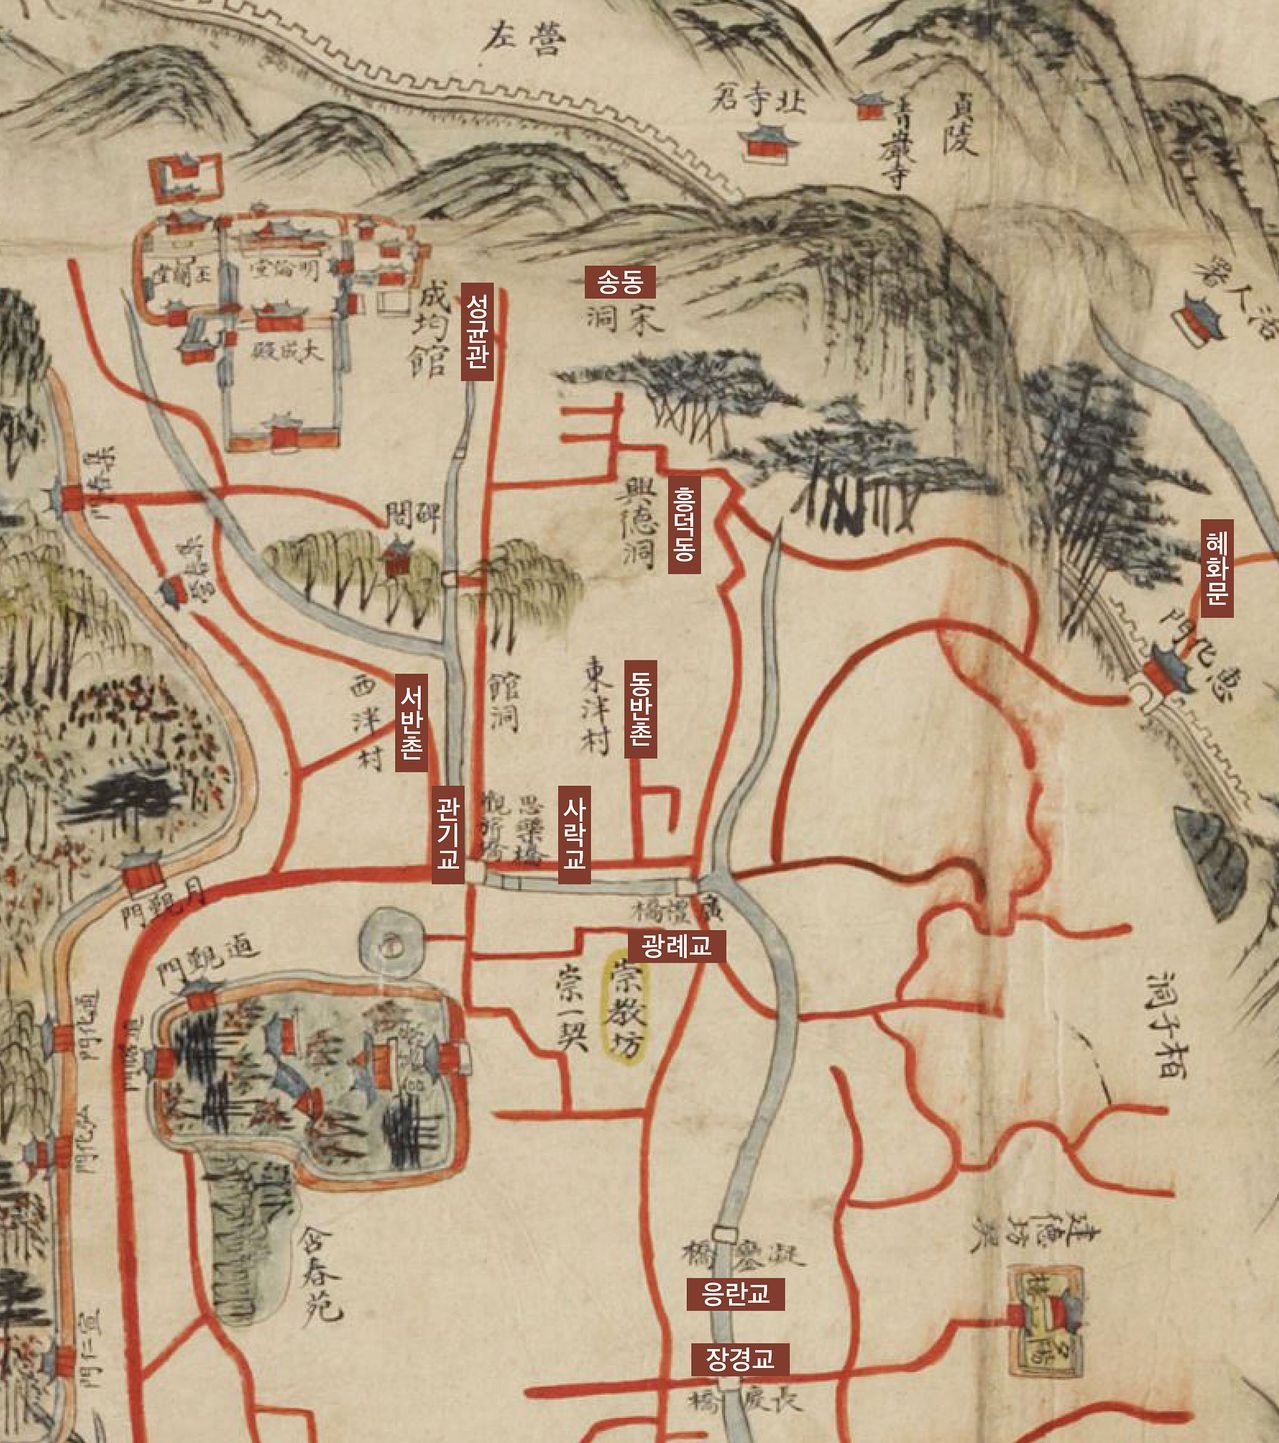 左營
北寺
青巖寺
貞陵
活人署
송동
宋洞
明倫堂
大成殿
成均館
성균관
碑閣
興德洞
흥덕동
혜화문
惠化門
西泮村
서반촌
館洞
東泮村
동반촌
관기교
觀旂橋
思樂橋
사락교
月覲門
廣禮橋
광례교
逌覲門
崇一契
崇敎坊
栢子洞
含春苑
建德坊契
凝鑾橋
응란교
장경교
長慶橋
宣仁門